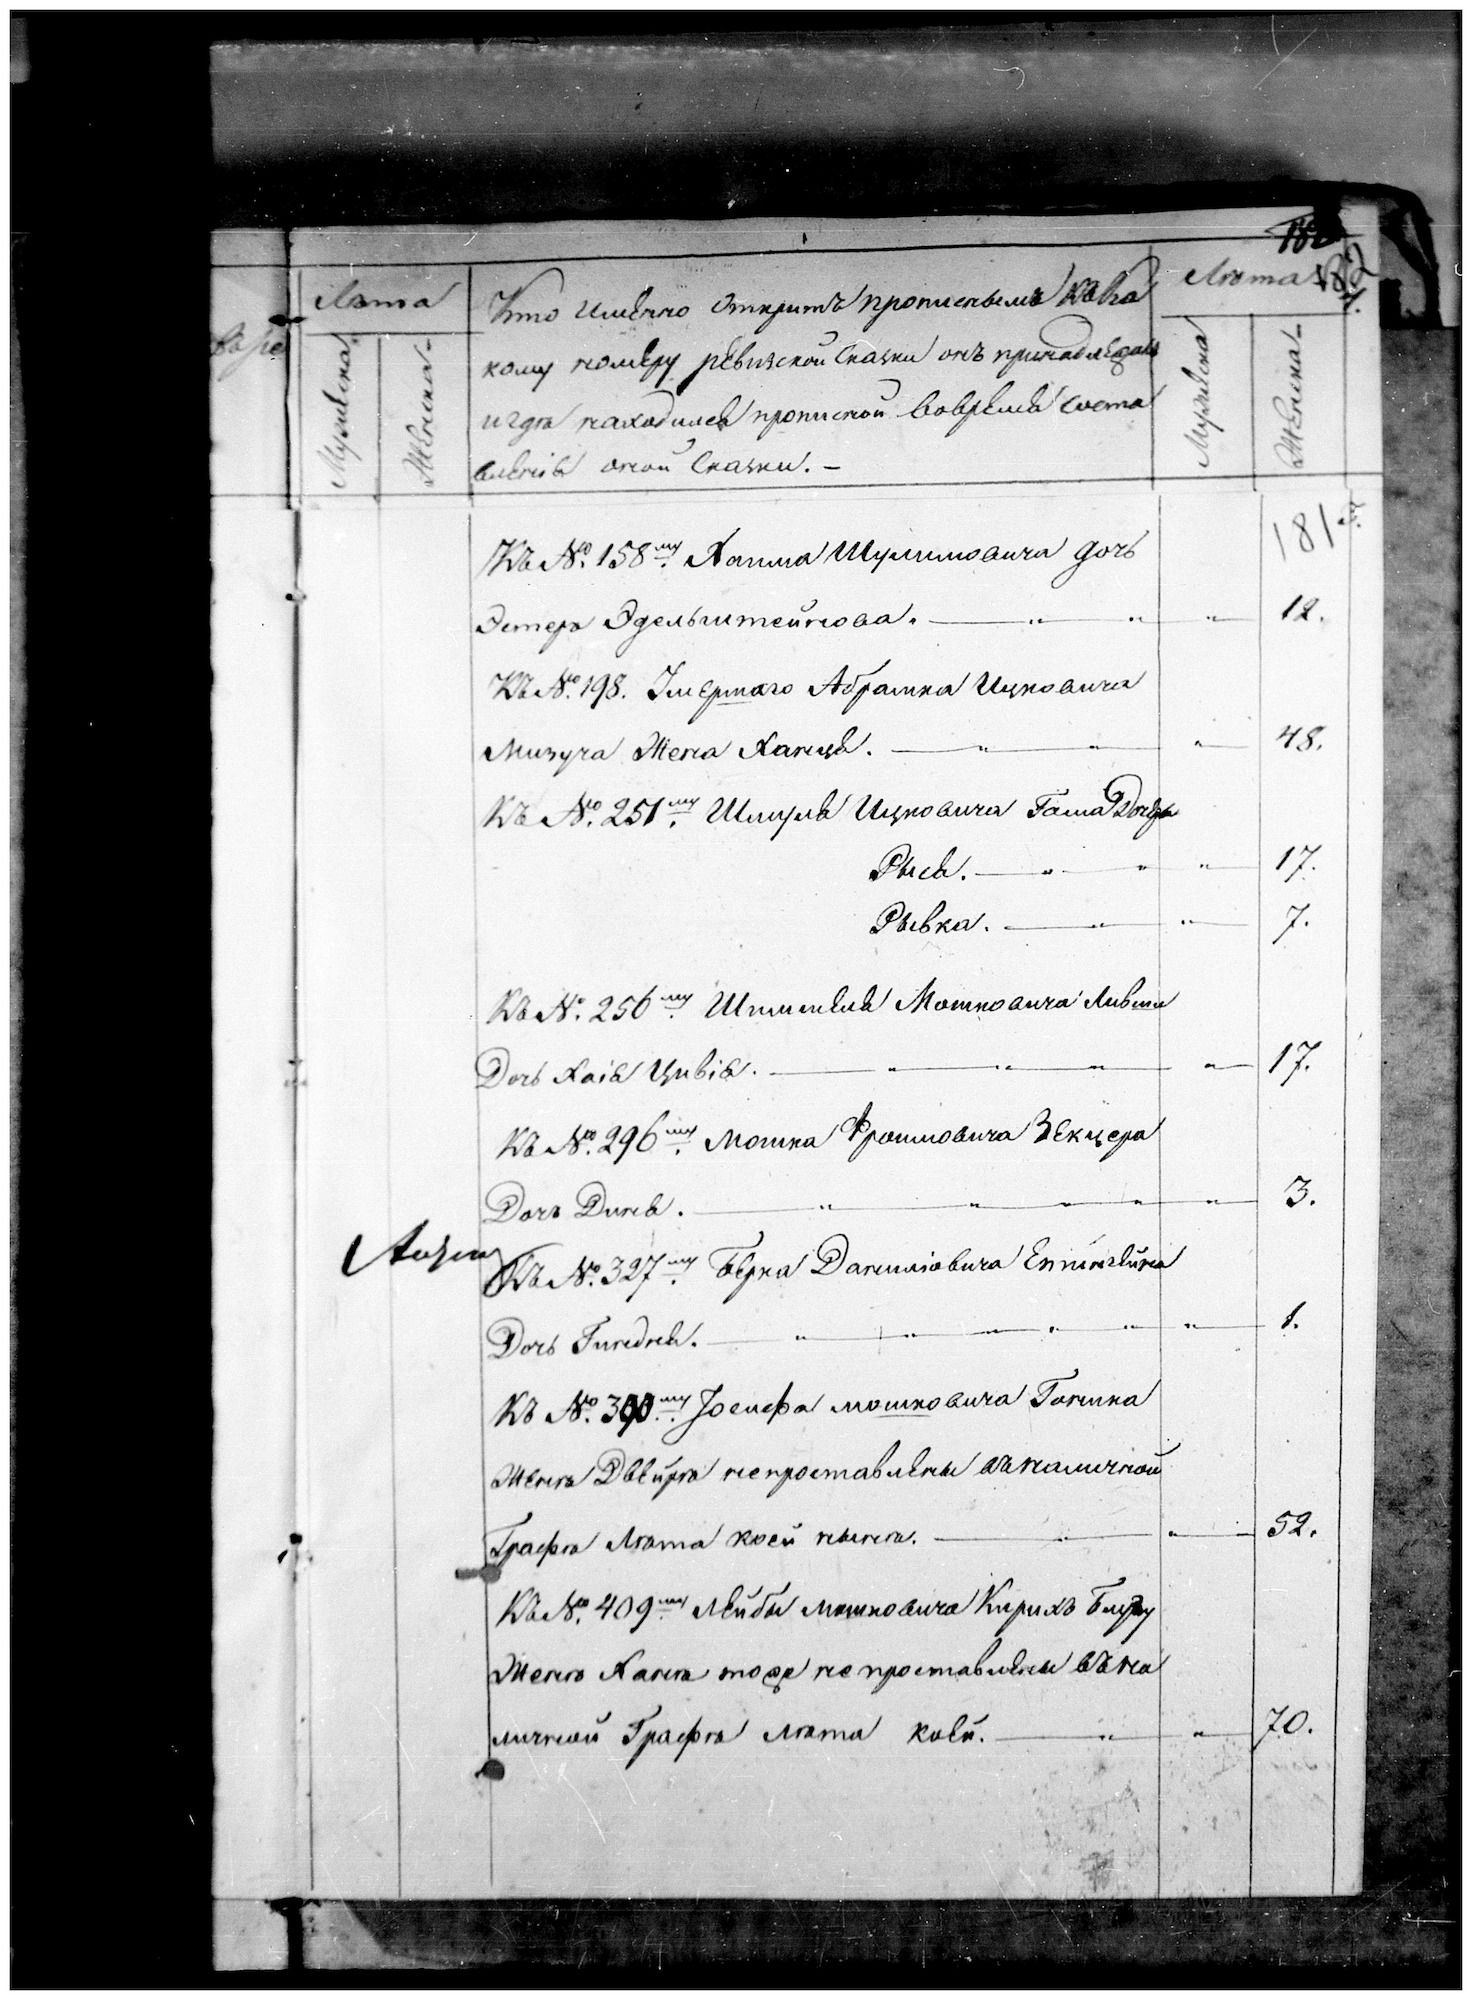 Лѣта
Мужеска
Женска
Кто именно открытъ прописнымъ къ ка
кому номеру ревизской сказки онъ принадлежалъ
и гдѣ находился пропиской вовремя соста
вленія оной сказки. –
Лѣта
Мужеска
Женска
181
Къ №. 158му. Хаима Шулимовича дочь
Эстера Эдельштейнова. — " " " — 12.
Къ №. 198. Умершаго Абрамка Ицковича
Мизуча Жена Ханця. — " " " — 48.
Къ №. 251му. Шмуля Ицковича Гама Дочери
Рыся. — " " " — 17.
Рывка. — " " — 7.
Къ №. 256му. Шмимеля Мошковича Лившы
Дочь Хаія Цивія. — " " " " — 17.
Къ №. 296му. Мошка Фроимовича Зекцера
Дочь Диня. — " " " " " — 3.
Къ №. 327му. Берка Даниліовича Епингейна
Дочь Гиндля. — " " " " " " — 1.
Къ №. 390му. Іосифа Мошковича Ганика
Женѣ Двейрѣ непроставлены въ наличной
Графѣ Лѣта коей нынѣ. — " " — 52.
Къ №. 409му. Лейбы Мошковича Кирихъ
Женѣ Ханѣ тоже не проставлены въ на
личной Графѣ лѣта коей. — " " — 70.